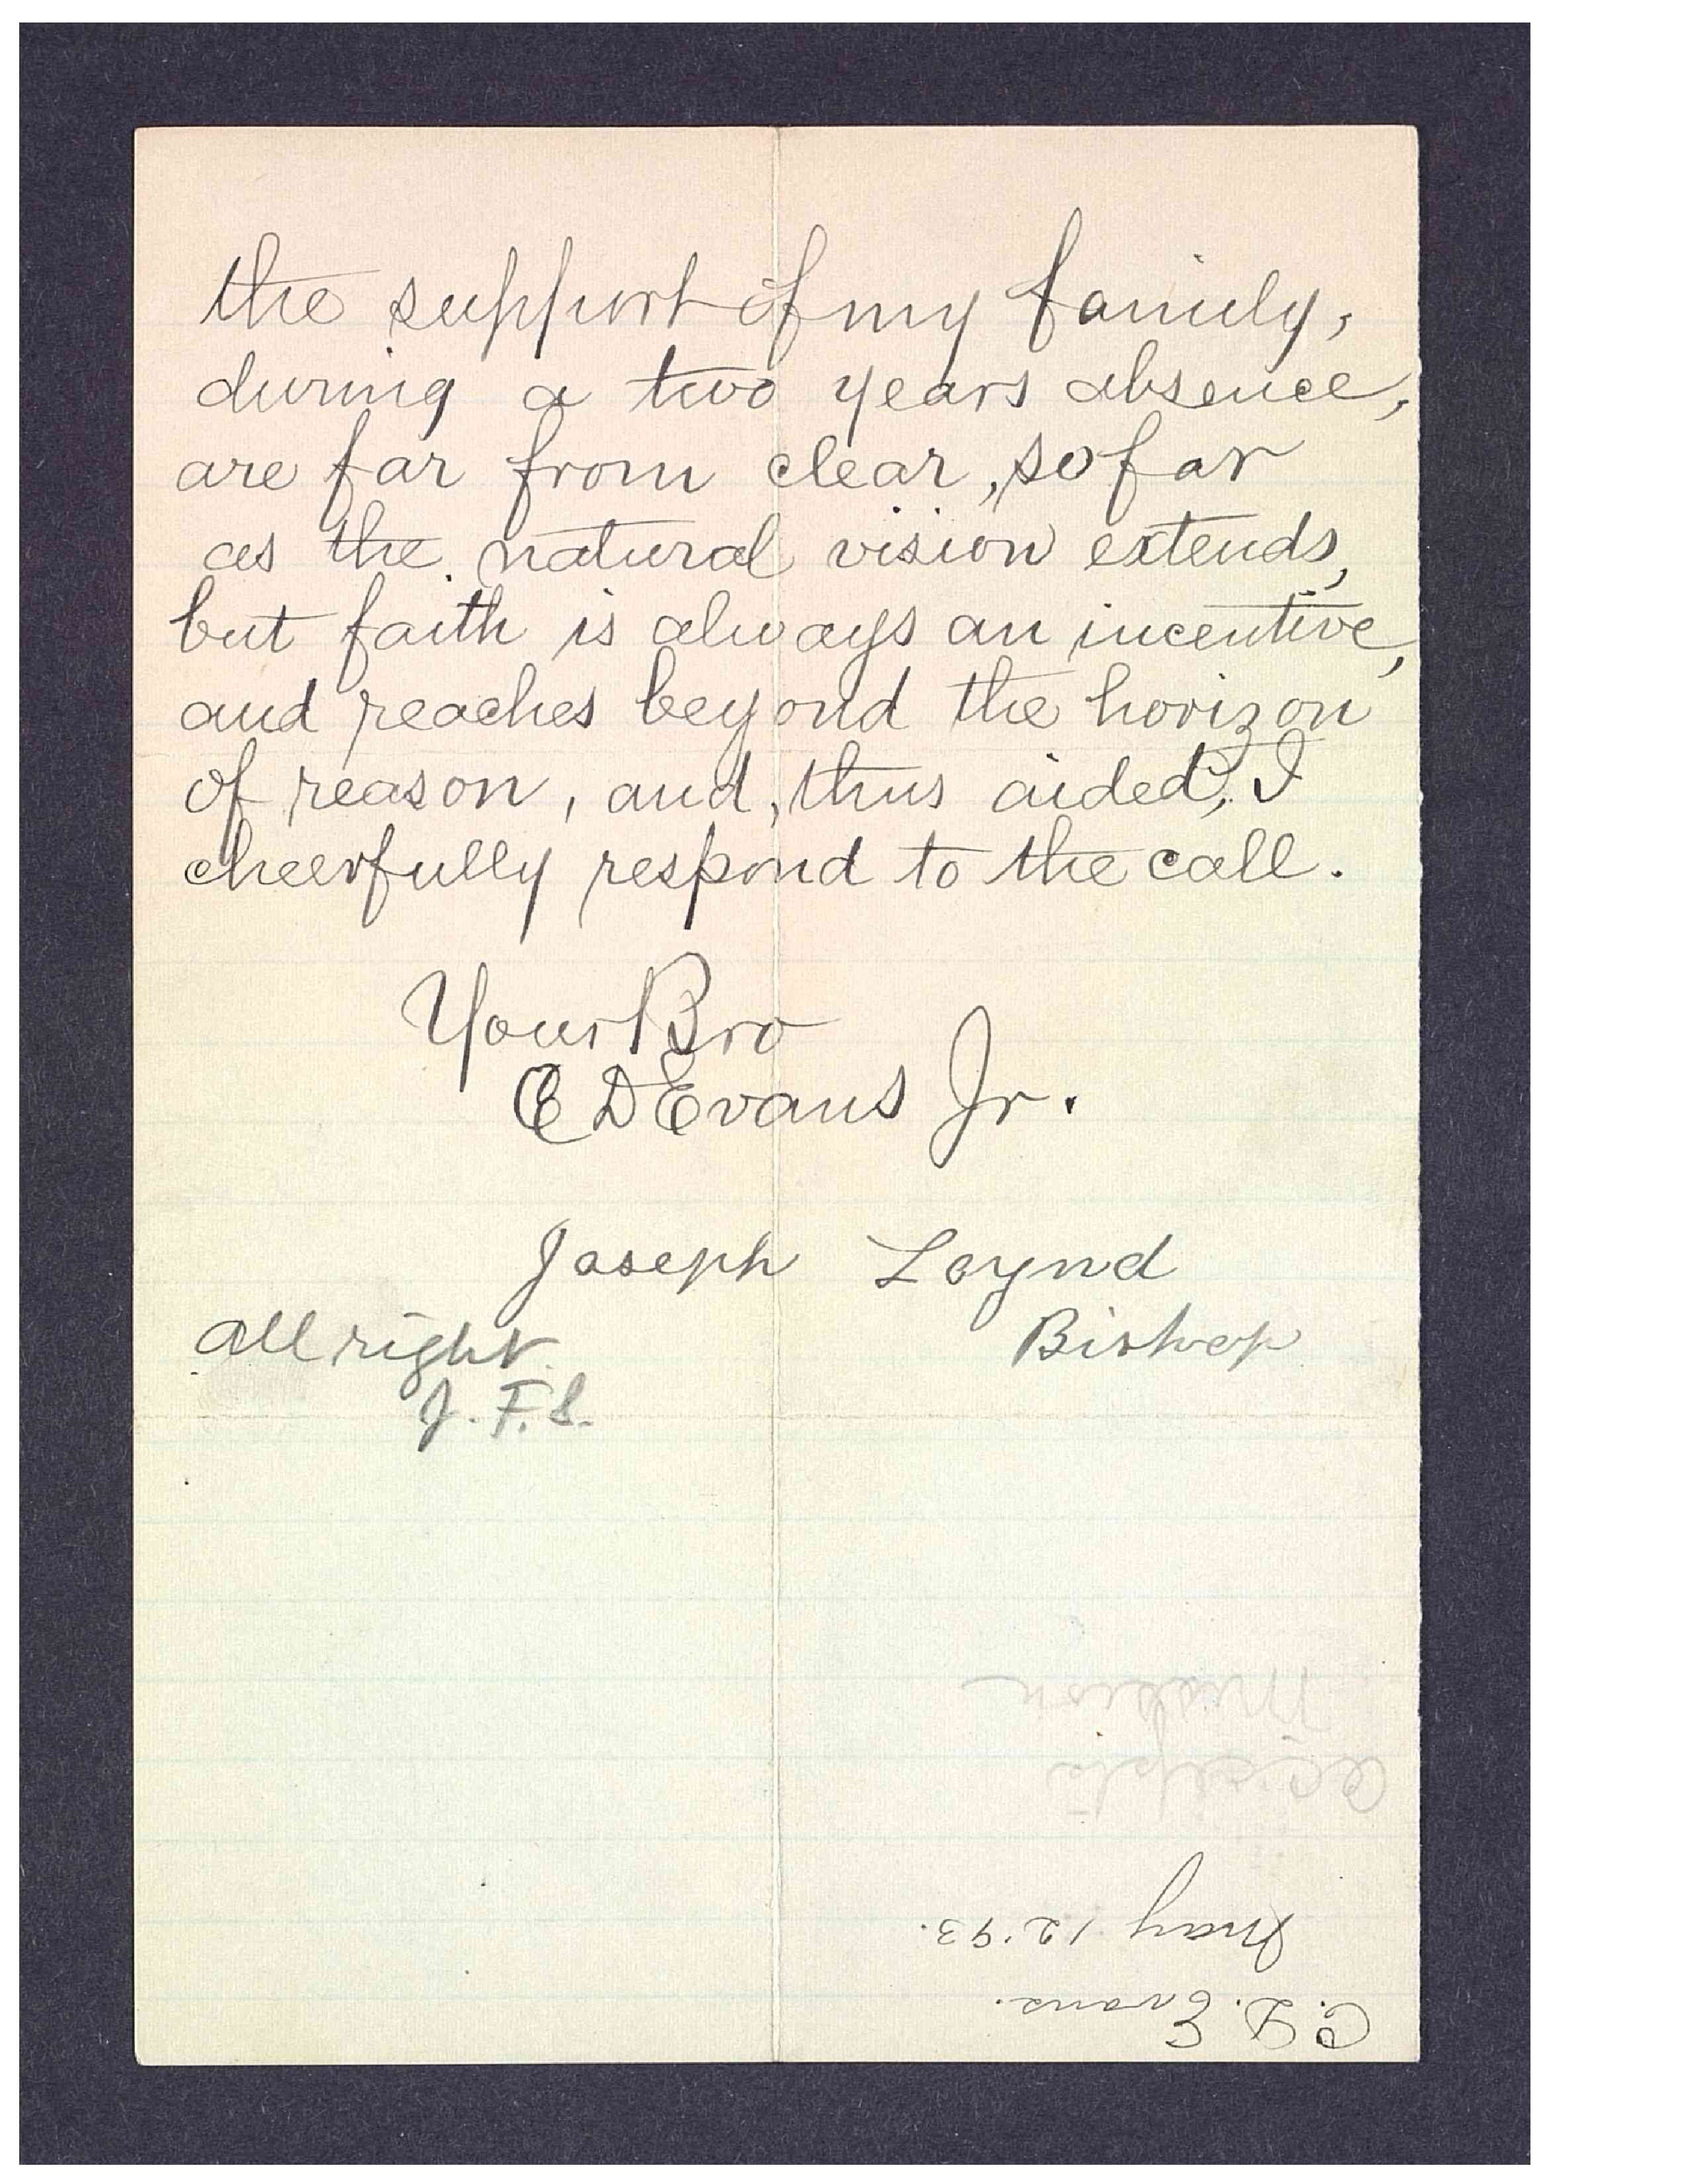 the support of my family,
during a two years absence,
are far from clear, so far
as the natural vision extends,
but faith is always an incentive,
and reaches beyond the horizon
of reason, and, thus aided, I
cheerfully respond to the call.
Your Bro
C D Evans Jr.
Joseph Loynd
Bishop
all right
J. F. S.
C. D. Evans.
May 12 '93.
Accepts
Mission